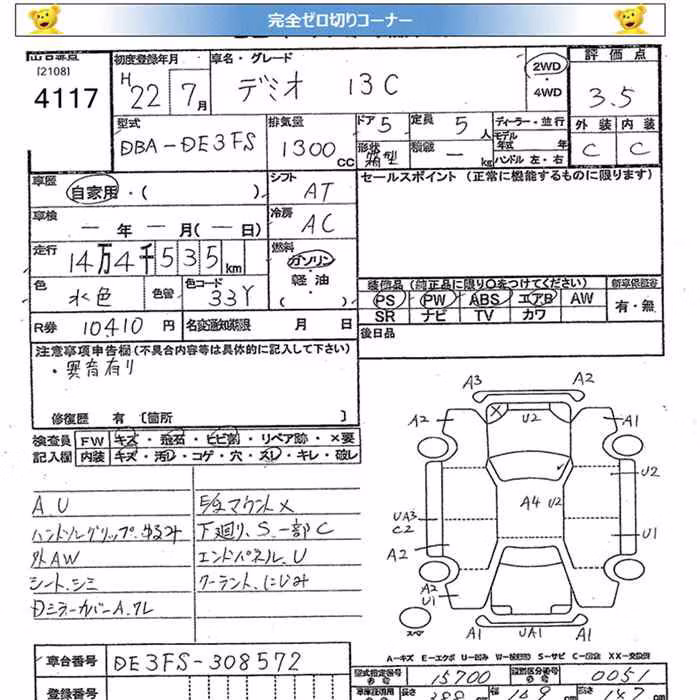 完全ゼロ切りコーナー
(2108)
4117
初度登録年月
H 22 7月
車名・グレード
デミオ 13C
2WD
・4WD
評価点
3.5
外装 内装
C C
型式
DBA-DE3FS
排気量
1300 CC
ドア 5
形状 箱型
定員 5 人
積載 — kg
ディーラー・並行
モデル年式 年
ハンドル 左・右
車歴
自家用・( )
シフト AT
セールスポイント (正常に機能するものに限ります)
車検
— 年 — 月(— 日)
冷房 AC
走行
14万4千535 km
燃料
ガソリン
軽油
( )
色
水色
色替
色コード 33Y
装備品(純正品に限り○をつけてください)
PS PW ABS エアB AW
SR ナビ TV カワ
新車保証書
有・無
R券 10410 円
名変通知期限 月 日
後日品
注意事項申告欄(不具合内容等は具体的に記入して下さい)
・異音有り
修復歴 有 〔箇所 〕
検査員
記入欄
FW キズ・飛石・ヒビ割・リペア跡・×要
内装 キズ・汚レ・コゲ・穴・スレ・キレ・破レ
AU
ハンドルグリップ.ゆるみ
外AW
シート.シミ
下廻り、S.一部C
エンドパネル.U
クーラント.にじみ
A3 A2
A2 U2 A1
U2
A4 U2
UA3
C2
U1
A2
A2
U1
スペア
A1 UA1 A1
A-キズ E-エクボ U-凹み W-補修跡 S-サビ C-腐蝕 XX-交換済
車台番号 DE3FS-308572
登録番号
型式指定番号 15700
類別区分番号 0051
長さ 幅 高さ